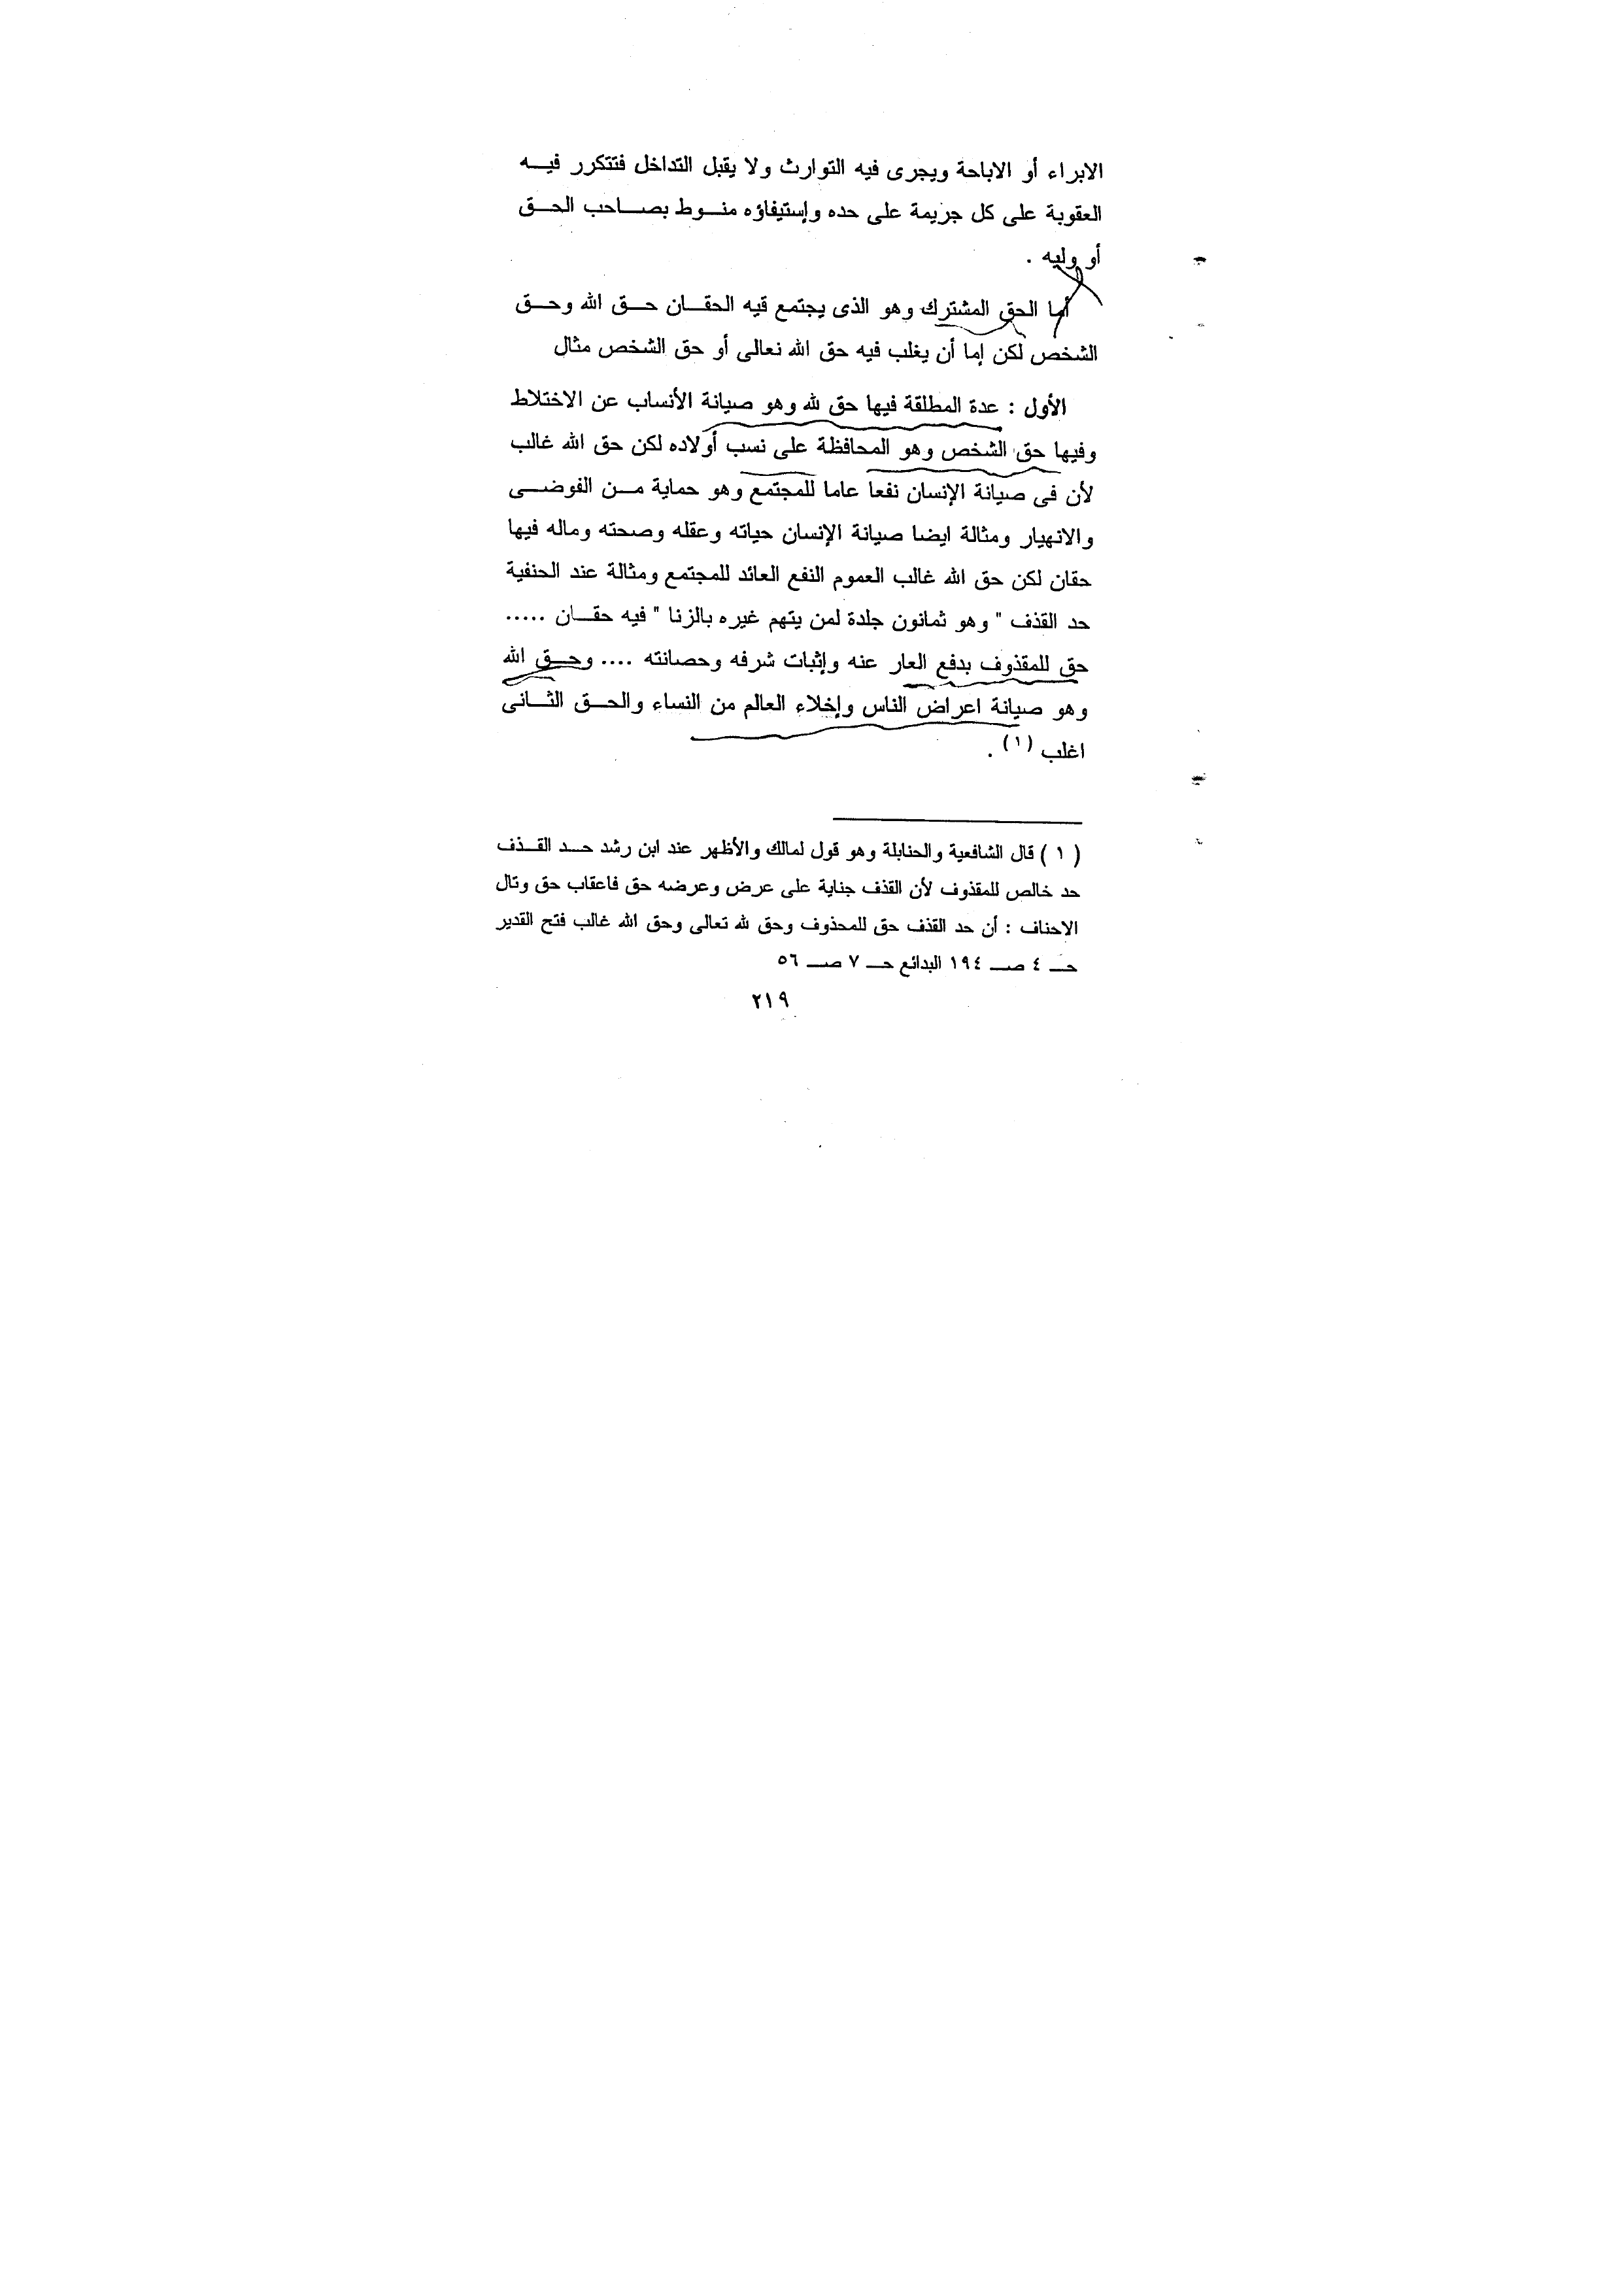 الابراء أو الاباحة ويجرى فيه التوارث ولا يقبل التداخل فتتكرر فيه
العقوبة على كل جريمة على حده وإستيفاؤه منوط بصاحب الحق
أو وليه .
أما الحق المشترك وهو الذى يجتمع فيه الحقان حق الله وحق
الشخص لكن إما أن يغلب فيه حق الله تعالى أو حق الشخص مثال
الأول : عدة المطلقة فيها حق لله وهو صيانة الأنساب عن الاختلاط
وفيها حق الشخص وهو المحافظة على نسب أولاده لكن حق الله غالب
لأن فى صيانة الإنسان نفعا عاما للمجتمع وهو حماية من الفوضى
والانهيار ومثالة ايضا صيانة الإنسان حياته وعقله وصحته وماله فيها
حقان لكن حق الله غالب العموم النفع العائد للمجتمع ومثالة عند الحنفية
حد القذف " وهو ثمانون جلدة لمن يتهم غيره بالزنا " فيه حقان .....
حق للمقذوف بدفع العار عنه وإثبات شرفه وحصانته .... وحق الله
وهو صيانة اعراض الناس وإخلاء العالم من النساء والحق الثانى
اغلب (١) .
( ١ ) قال الشافعية والحنابلة وهو قول لمالك والأظهر عند ابن رشد حد القذف
حد خالص للمقذوف لأن القذف جناية على عرض وعرضه حق فاعقاب حق وتال
الاحناف : أن حد القذف حق للمحذوف وحق لله تعالى وحق الله غالب فتح القدير
حـ ٤ صـ ١٩٤ البدائع حـ ٧ صـ ٥٦
٢١٩